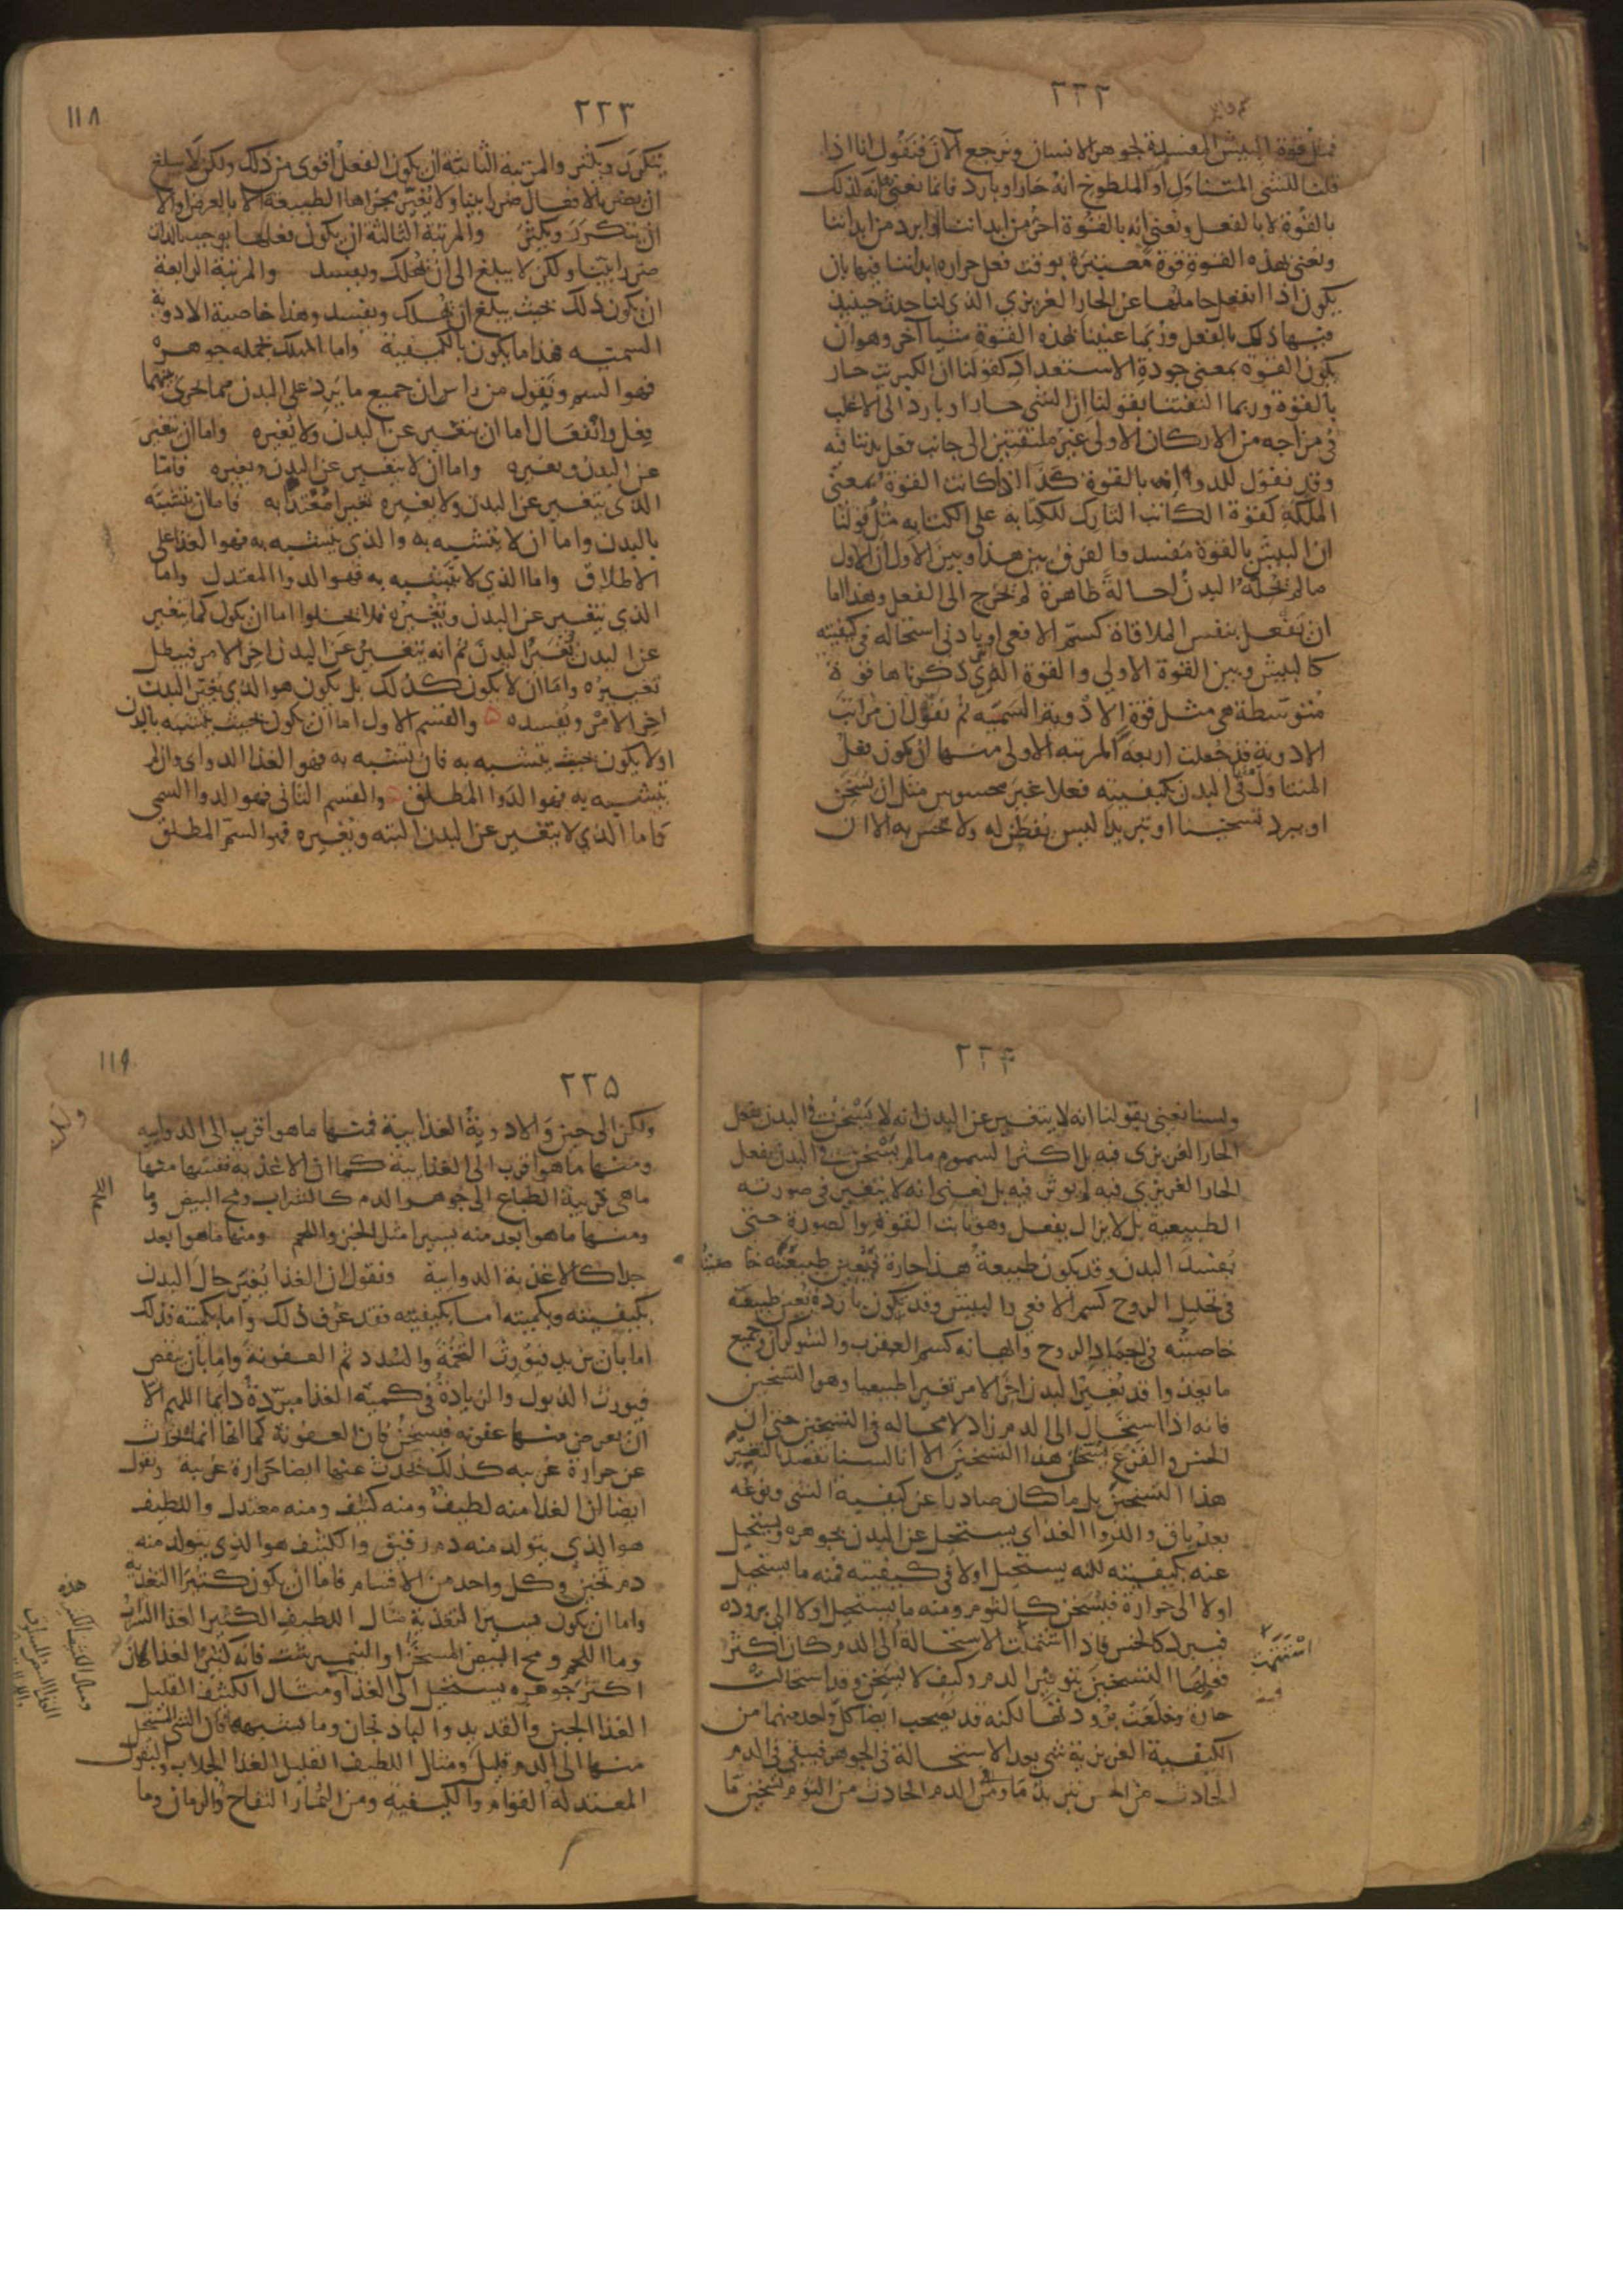 ٢٢٢
فمثل قوة البيش المفسدة لجوهر الانسان ونرجع الآن فنقول انا اذا
قلنا للشى المتناول او الملطوخ انه حار او بارد فانما نعنى انه كذلك
بالقوة لا بالفعل ونعنى انه بالقوة احر من ابداننا او ابرد من ابداننا
ونعنى بهذه القوة قوة معتبرة بوقت فعل حرارة ابداننا فيها بان
يكون اذا انفعل حاملها عن الحار الغريزي الذي لنا حدث حينئذ
فيها ذلك بالفعل وربما عنينا بهذه القوة شيا آخر وهو ان
يكون القوة بمعنى جودة الاستعداد كقولنا ان الكبريت حار
بالقوة وربما التفتنا بقولنا ان الشى حار او بارد الى الاغلب
فى مزاجه من الاركان الاولى غير ملتفتين الى جانب فعل بدننا فيه
وقد نقول للدوا انه بالقوة كذا اذا كانت القوة بمعنى
الملكة كقوة الكاتب التارك للكتابة على الكتابه مثل قولنا
ان البيش بالقوة مفسد والفرق بين هذا وبين الاول ان الاول
ما لم يحله البدن احالة ظاهرة لم يخرج الى الفعل وهذا اما
ان يفعل بنفس الملاقاة كسم الافعى او بادنى استحاله فى كيفيته
كالبيش وبين القوة الاولى والقوة التى ذكرناها قوة
متوسطة هى مثل قوة الادوية السمية ثم نقول ان مراتب
الادوية قد جعلت اربعة المرتبه الاولى منها ان يكون فعل
المتناول فى البدن بكيفيته فعلا غير محسوس مثل ان يسخن
او يبرد تسخينا او تبريدا ليس يفطن له ولا يحس به الا ان
٢٢٣
١١٨
يتكرر ويكثر والمرتبة الثانية ان يكون الفعل اقوى من ذلك ولكن لا يبلغ
ان يضر بالافعال ضررا بينا ولا يغير مجراها الطبيعة الا بالعرض او الا
ان يتكرر ويكثر والمرتبة الثالثة ان يكون فعلها يوجب بالذات
ضررا بينا ولكن لا يبلغ الى ان يهلك ويفسد والمرتبة الرابعة
ان يكون ذلك بحيث يبلغ ان يهلك ويفسد وهذا خاصية الادوية
السمية فهذا ما يكون بالكيفية واما المهلك بجمله جوهره
فهو السم ونقول من راس ان جميع ما يرد على البدن مما يجرى بينهما
فعل وانفعال اما ان يتغير عن البدن ولا يغيره واما ان يتغير
عن البدن ويغيره واما ان لا يتغير عن البدن ويغيره فاما
الذى يتغير عن البدن ولا يغيره تغيرا معتدا به فاما ان يتشبه
بالبدن واما ان لا يتشبه به والذى يتشبه به فهو الغذا على
الاطلاق واما الذي لا يتشبه به فهو الدوا المعتدل واما
الذى يتغير عن البدن ويغيره فلا يخلوا اما ان يكون كما يتغير
عن البدن يغير البدن ثم انه يتغير عن البدن اخر الامر فيبطل
تغييره واما ان لا يكون كذلك بل يكون هو الذي يغير البدن
اخر الامر ويفسده ه والقسم الاول اما ان يكون بحيث يتشبه بالبدن
او لا يكون بحيث يتشبه به فان تشبه به فهو الغذا الدواى وان لم
يتشبه به فهو الدوا المطلق ه والقسم الثانى فهو الدوا السمى
فاما الذي لا يتغير عن البدن البته ويغيره فهو السم المطلق
٢٢٤
ولسنا نعنى بقولنا انه لا يتغير عن البدن انه لا يسخن فى البدن بفعل
الحار الغريزى فيه بل اكثر السموم ما لم يسخن فى البدن بفعل
الحار الغريزي فيه لم يوثر فيه بل نعنى انه لا يتغير فى صورته
الطبيعية بل لا يزال يفعل وهو ثابت القوة والصورة حتى
يفسد البدن وقد يكون طبيعة هذا حارة فتعين طبيعته خاصيته
فى تحليل الروح كسم الافعي والبيش وقد يكون باردة فتعين طبيعته
خاصيته فى اجماد الروح وايهانه كسم العقرب والشوكران وجميع
ما يغذوا قد يغير البدن آخر الامر تغيرا طبيعيا وهو التسخين
فانه اذا استحال الى الدم زاد لا محاله فى التسخين حتى ان
الخس والقرع يسخن هذا التسخين الا انا لسنا نقصد بالتغيير
هذا التسخين بل ما كان صادرا عن كيفية الشى ونوعه
بعد باق والدوا الغذاى يستحيل عن البدن بجوهره ويستحيل
عنه بكيفيته لكنه يستحيل اولا فى كيفيته فمنه ما يستحيل
اولا الى حرارة فيسخن كالثوم ومنه ما يستحيل اولا الى بروده
فيبرد كالخس فاذا استتمت الاستحالة الى الدم كان اكثر
فعلها التسخين بتوفير الدم وكيف لا يسخن وقد استحالت
حارة وخلعت برودتها لكنه قد يصحب ايضا كل واحد منهما من
الكيفية الغريزية شى بعد الاستحالة فى الجوهر فيبقى فى الدم
الحادث من الخس تبريد ما ومن الدم الحادث من الثوم تسخين ما
استتمت
٢٢٥
١١٩
ولكن الى حين والادوية الغذائية فمنها ما هو اقرب الى الدوايه
ومنها ما هو اقرب الى الغذاييه كما ان الاغذيه نفسها منها
ماهى قريبة الطباع الى جوهر الدم كالشراب ومح البيض وما
ومنها ما هو ابعد منه يسيرا مثل الخبز واللحم ومنها ما هو ابعد
جدا كالاغذية الدوايية ونقول ان الغذا يغير حال البدن
بكيفيته وبكميته اما بكيفيته فقد عرف ذلك واما بكميته فذلك
اما بان يزيد فيورث التخمة والسدد ثم العفونة واما بان ينقص
فيورث الذبول والزيادة فى كمية الغذا مبردة دايما اللهم الا
ان يعرض منها عفونه فيسخن فان العفونة كما انها انما تحدث
عن حرارة غريبه كذلك يحدث عنها ايضا حرارة غريبة ونقول
ايضا ان الغذا منه لطيف ومنه كثيف ومنه معتدل واللطيف
هو الذي يتولد منه دم رقيق والكثيف هو الذي يتولد منه
دم ثخين وكل واحد من الاقسام فاما ان يكون كثير التغذية
واما ان يكون يسير التغذية مثال اللطيف الكثير الغذا الشراب
وما اللحم ومح البيض المسخن او النيمبرشت فانه كثير الغذا لان
اكثر جوهره يستحيل الى الغذا ومثال الكثيف القليل
الغذا الجبن والقديد والباذنجان وما يشبهه فان الشى المستحيل
منها الى الدم قليل ومثال اللطيف القليل الغذا الجلاب والبقول
المعتدلة القوام والكيفية ومن الثمار التفاح والرمان وما